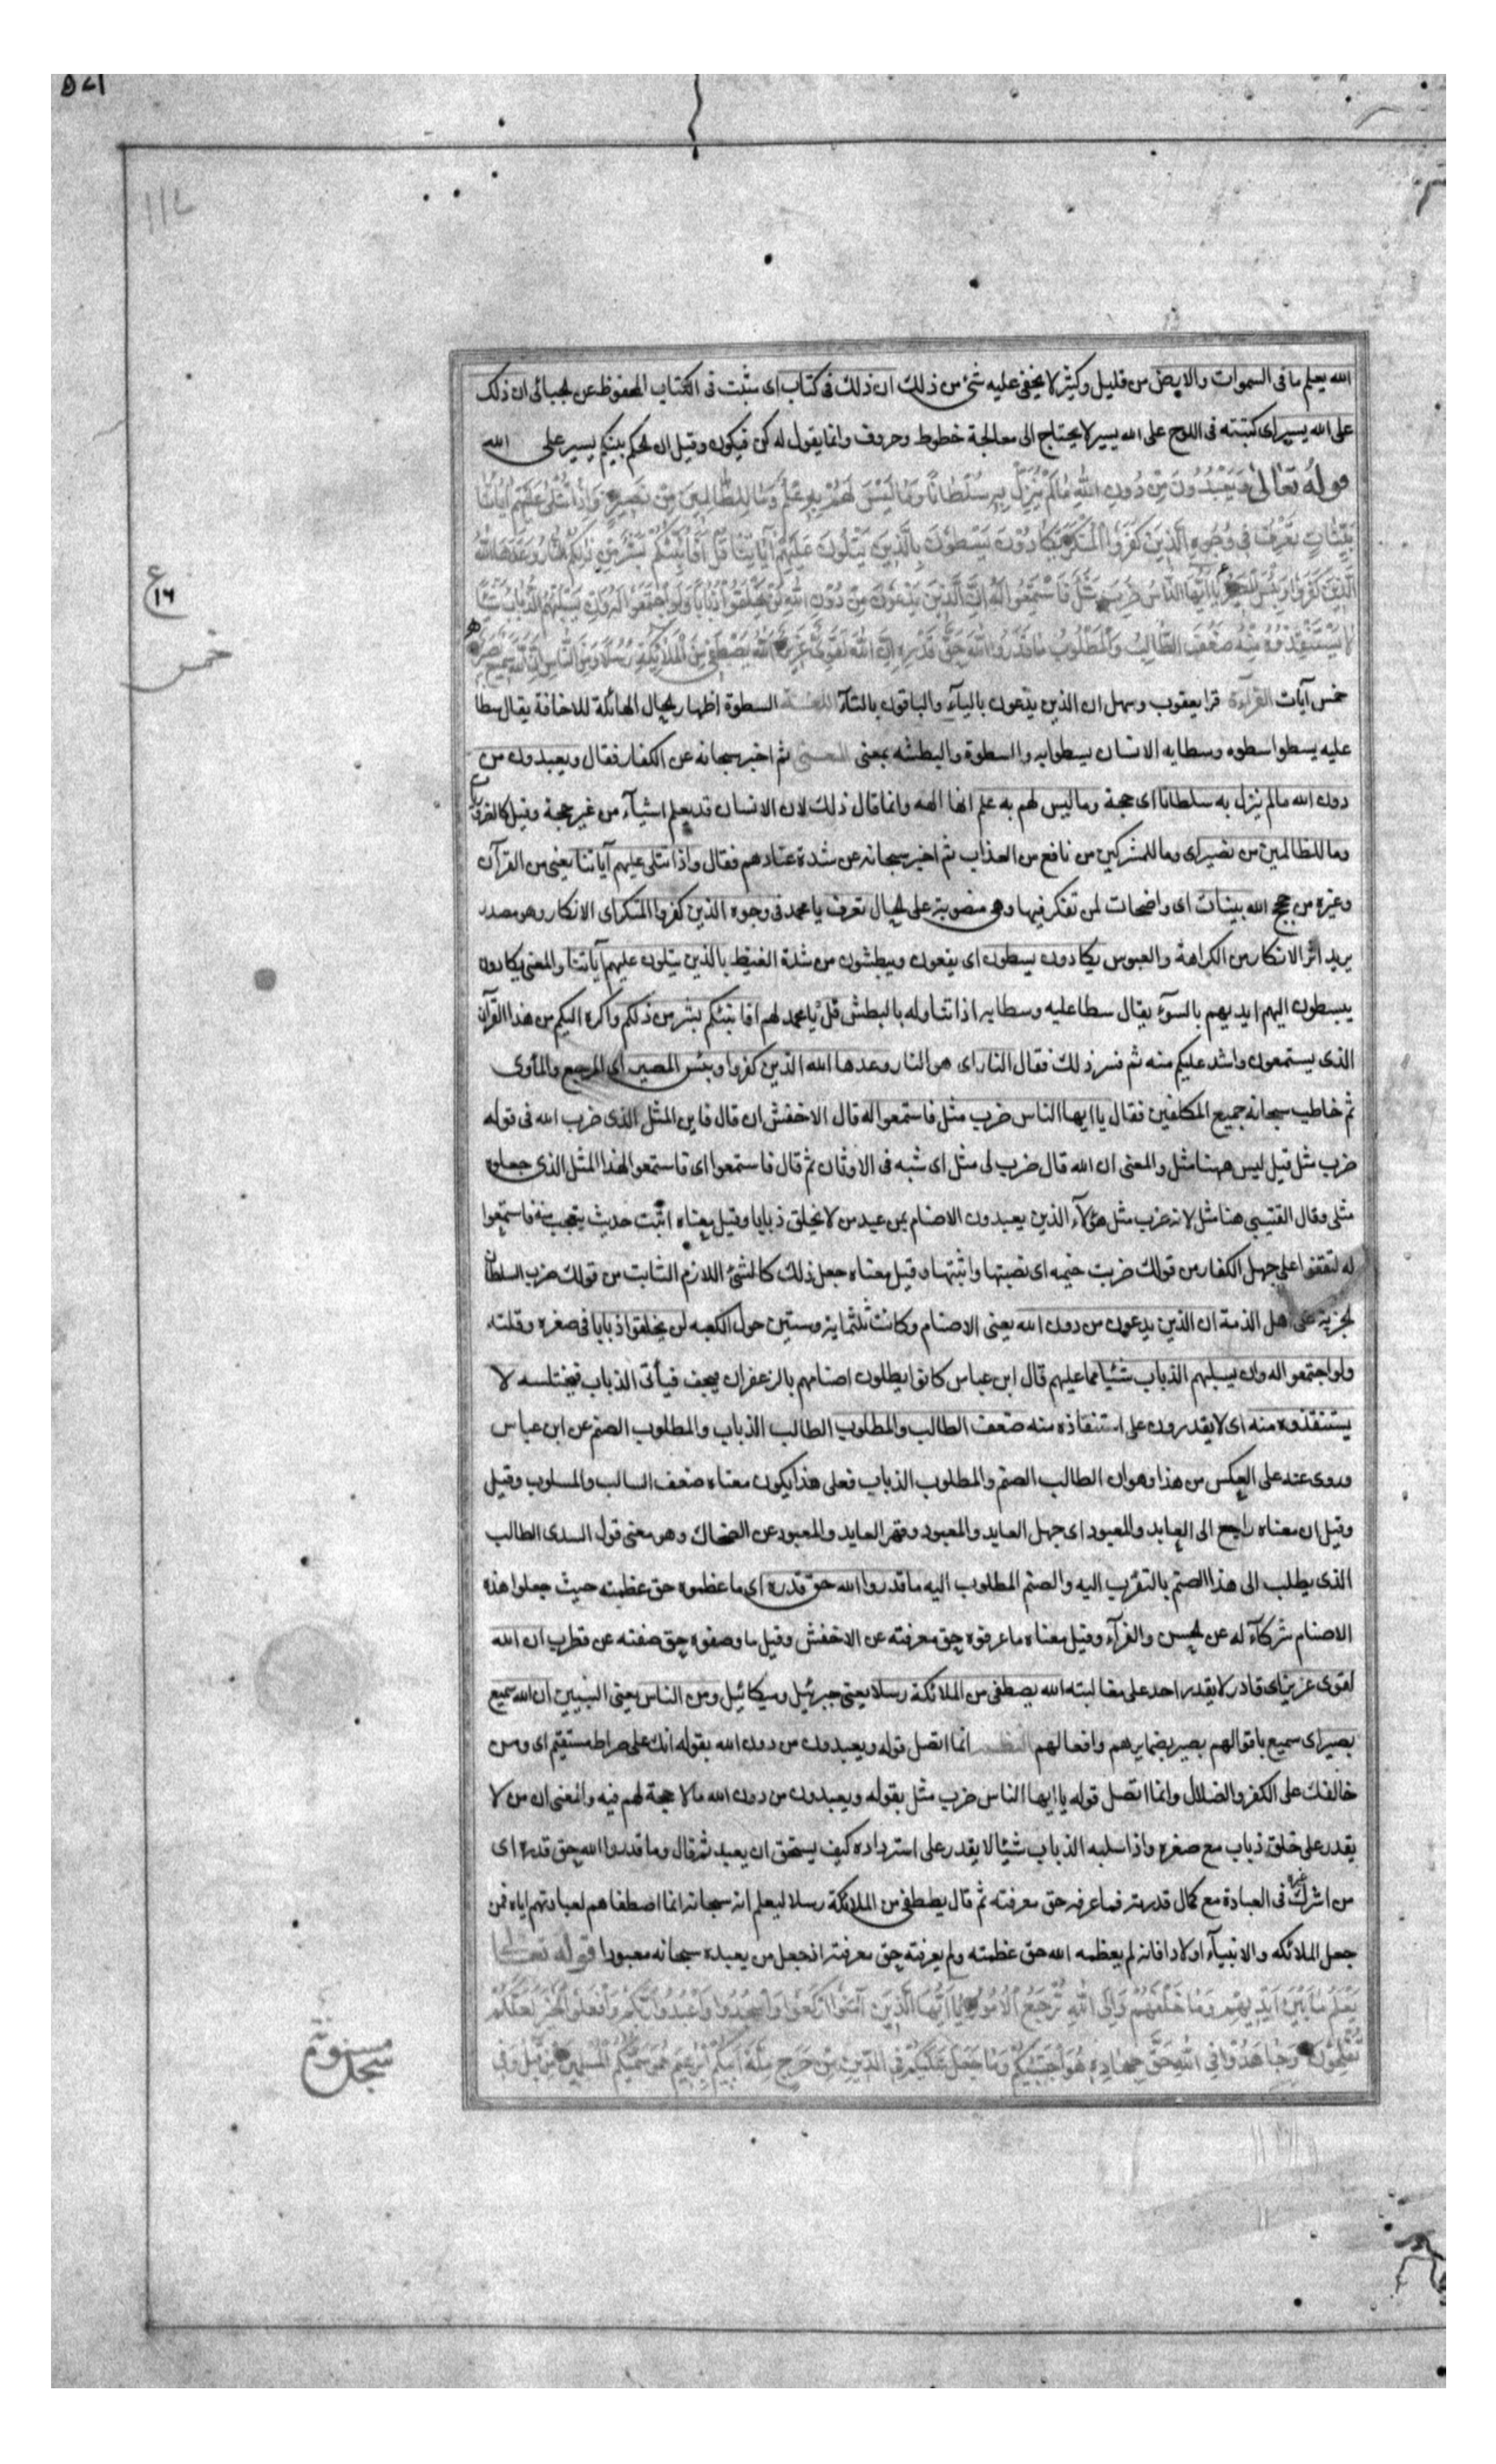 الله يعلم ما فى السموات والارض من قليل وكثير لا يخفى عليه شئ من ذلك ان ذلك فى كتاب اى مثبت فى الكتاب المحفوظ عن الجبائى ان ذلك
على الله يسير اى كتبته فى اللوح على الله يسير لا يحتاج الى معالجة خطوط وحروف وانما يقول له كن فيكون وقيل ان الحكم بينكم يسير على الله
قوله تعالى وَيَعْبُدُونَ مِنْ دُونِ اللهِ مَا لَمْ يُنَزِّلْ بِهِ سُلْطَانًا وَمَا لَيْسَ لَهُمْ بِهِ عِلْمٌ وَمَا لِلظَّالِمِينَ مِنْ نَصِيرٍ وَاِذَا تُتْلَى عَلَيْهِمْ آيَاتُنَا
بَيِّنَاتٍ تَعْرِفُ فِي وُجُوهِ الَّذِينَ كَفَرُوا الْمُنْكَرَ يَكَادُونَ يَسْطُونَ بِالَّذِينَ يَتْلُونَ عَلَيْهِمْ آيَاتِنَا قُلْ اَفَاُنَبِّئُكُمْ بِشَرٍّ مِنْ ذلِكُمُ النَّارُ وَعَدَهَا اللهُ
الَّذِينَ كَفَرُوا وَبِئْسَ الْمَصِيرُ يَا اَيُّهَا النَّاسُ ضُرِبَ مَثَلٌ فَاسْتَمِعُوا لَهُ اِنَّ الَّذِينَ يَدْعُونَ مِنْ دُونِ اللهِ لَنْ يَخْلُقُوا ذُبَابًا وَلَوِ اجْتَمَعُوا لَهُ وَاِنْ يَسْلُبْهُمُ الذُّبَابُ شَيْئًا
لَا يَسْتَنْقِذُوهُ مِنْهُ ضَعُفَ الطَّالِبُ وَالْمَطْلُوبُ مَا قَدَرُوا اللهَ حَقَّ قَدْرِهِ اِنَّ اللهَ لَقَوِيٌّ عَزِيزٌ اَللهُ يَصْطَفِي مِنَ الْمَلَائِكَةِ رُسُلًا وَمِنَ النَّاسِ اِنَّ اللهَ سَمِيعٌ بَصِيرٌ
خمس آيات القراءة قرا يعقوب وسهل ان الذين يدعون بالياء والباقون بالتاء اللغة السطوة اظهار الحال الهائلة للاخافة يقال سطا
عليه يسطوا سطوه وسطا به الانسان يسطوا به والسطوة والبطشه بمعنى المعنى ثم اخبر سبحانه عن الكفار فقال ويعبدون من
دون الله ما لم ينزل به سلطانا اى حجة وما ليس لهم به علم انها الهه وانما قال ذلك لان الانسان قد يعلم اشياء من غير حجة وقيل
وما للظالمين من نصير اى وما للمشركين من نافع من العذاب ثم اخبر سبحانه عن شدة عنادهم فقال واذا تتلى عليهم آياتنا يعنى من القرآن
وغيره من حجج الله بينات اى واضحات لمن تفكر فيها وهى منصوبة على الحال تعرف يا محمد فى وجوه الذين كفروا المنكر اى الانكار وهو مصدر
يريد اثر الانكار من الكراهة والعبوس يكادون يسطون اى يقعون ويبطشون من شدة الغيظ بالذين يتلون عليهم آياتنا والمعنى يكادون
يبسطون اليهم ايديهم بالسوء يقال سطا عليه وسطا به اذا تناوله بالبطش قل يا محمد لهم افانبئكم بشر من ذلكم واكره اليكم من هذا القرآن
الذى يستمعون واشد عليكم منه ثم فسر ذلك فقال النار اى هو النار وعدها الله الذين كفروا وبئس المصير اى المرجع والمأوى
ثم خاطب سبحانه جميع المكلفين فقال يا ايها الناس ضرب مثل فاستمعوا له قال الاخفش ان قال فاين المثل الذى ضرب الله فى قوله
ضرب مثل قيل ليس ههنا مثل والمعنى ان الله قال ضرب لى مثل اى شبه فى الاوثان ثم قال فاستمعوا اى فاستمعوا لهذا المثل الذى جعلوه
مثلى وقال القتيبى هنا مثل لانه ضرب مثل هؤلاء الذين يعبدون الاصنام بمن عبد من لا يخلق ذبابا وقيل معناه اثبت حديث يتعجب منه فاستمعوا
له لتقفوا على جهل الكفار من قولك ضربت خيمه اى نصبتها واثبتها وقيل معناه جعل ذلك كالشئ اللازم الثابت من قولك ضرب السلطان
الجزية على اهل الذمة ان الذين يدعون من دون الله يعنى الاصنام وكانت ثلثماية وستين حول الكعبه لن يخلقوا ذبابا فى صغره وقلته
ولو اجتمعوا له وان يسلبهم الذباب شيئا مما عليهم قال ابن عباس كانوا يطلون اصنامهم بالزعفران فيجف فيأتى الذباب فيختلسه لا
يستنقذوه منه اى لا يقدرون على استنقاذه منه ضعف الطالب والمطلوب الطالب الذباب والمطلوب الصنم عن ابن عباس
وروى عنه على العكس من هذا وهو ان الطالب الصنم والمطلوب الذباب فعلى هذا يكون معناه ضعف السالب والمسلوب وقيل
وقيل ان معناه راجع الى العابد والمعبود اى جهل العابد والمعبود وقهر العابد والمعبود عن الضحاك وهو معنى قول السدى الطالب
الذى يطلب الى هذا الصنم بالتقرب اليه والصنم المطلوب اليه ما قدروا الله حق قدره اى ما عظموه حق عظمته حيث جعلوا هذه
الاصنام شركاء له عن الحسن والفراء وقيل معناه ما عرفوه حق معرفته عن الاخفش وقيل ما وصفوه حق صفته عن قطرب ان الله
لقوى عزيز اى قادر لا يقدر احد على مغالبته الله يصطفى من الملائكة رسلا يعنى جبرئيل وميكائيل ومن الناس يعنى النبيين ان الله سميع
بصير اى سميع باقوالهم بصير بضمايرهم وافعالهم النظم انما اتصل قوله ويعبدون من دون الله بقوله انك على صراط مستقيم اى ومن
خالفك على الكفر والضلال وانما اتصل قوله يا ايها الناس ضرب مثل بقوله ويعبدون من دون الله مالا حجة لهم فيه والمعنى ان من لا
يقدر على خلق ذباب مع صغره واذا سلبه الذباب شيئا لا يقدر على استرداده كيف يستحق ان يعبد ثم قال وما قدروا الله حق قدره اى
من اشرك غيره فى العبادة مع كمال قدرته فما عرفه حق معرفته ثم قال يصطفى من الملائكة رسلا ليعلم انه سبحانه انما اصطفاهم لعبادتهم اياه فمن
جعل الملائكه والانبياء اولادا فانه لم يعظمه الله حق عظمته ولم يعرفه حق معرفته اذ جعل من يعبده سبحانه معبودا قوله تعالى
يَعْلَمُ مَا بَيْنَ اَيْدِيهِمْ وَمَا خَلْفَهُمْ وَاِلَى اللهِ تُرْجَعُ الْاُمُورُ يَا اَيُّهَا الَّذِينَ آمَنُوا ارْكَعُوا وَاسْجُدُوا وَاعْبُدُوا رَبَّكُمْ وَافْعَلُوا الْخَيْرَ لَعَلَّكُمْ
تُفْلِحُونَ وَجَاهِدُوا فِي اللهِ حَقَّ جِهَادِهِ هُوَ اجْتَبَيكُمْ وَمَا جَعَلَ عَلَيْكُمْ فِي الدِّينِ مِنْ حَرَجٍ مِلَّةَ اَبِيكُمْ اِبْرهِيمَ هُوَ سَمَّيكُمُ الْمُسْلِمِينَ مِنْ قَبْلُ وَفِي
ع
١٦
خمس